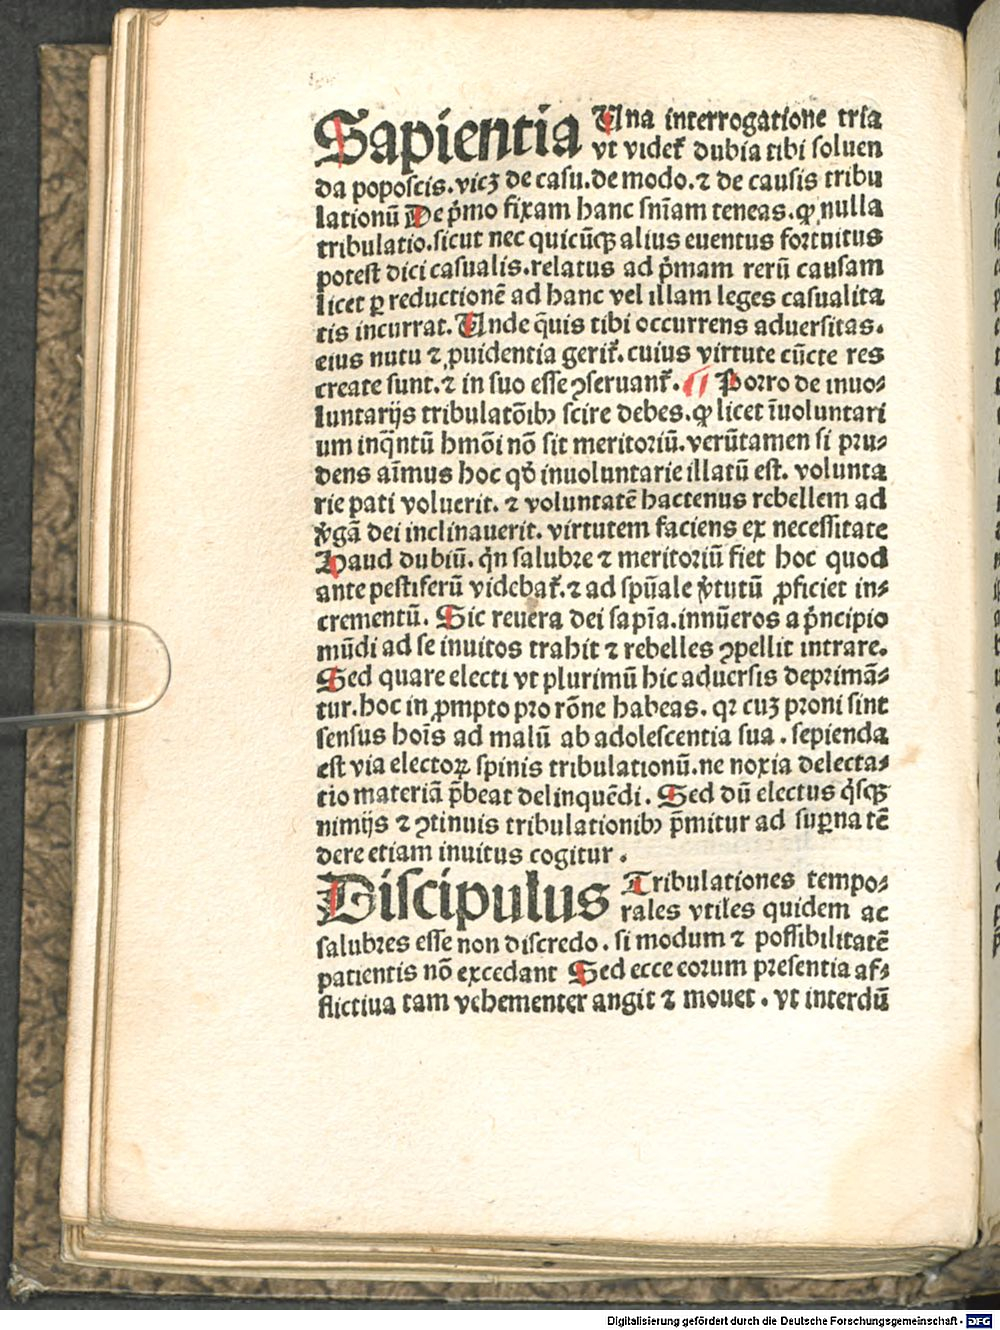 Sapientia Una interrogatione tria
vt videt᷑ dubia tibi soluen
da poposcis. vicꝫ de casu. de modo. ⁊ de causis tribu
lationū De p̄mo fixam hanc sn̄iam teneas. ꝙ nulla
tribulatio. sicut nec quicūqꝫ alius euentus fortuitus
potest dici casualis. relatus ad p̄mam rerū causam
licet ꝑ reductionē ad hanc vel illam leges casualita
tis incurrat. Unde q̄uis tibi occurrens aduersitas.
eius nutu ⁊ ꝓuidentia gerit᷑. cuius virtute cūcte res
create sunt. ⁊ in suo esse ꝯseruant᷑. ¶ Porro de inuo⸗
luntarijs tribulatōibꝫ scire debes. ꝙ licet īuoluntari
um inq̄ntū hmōi nō sit meritoriū. verūtamen si pru⸗
dens aīmus hoc qđ inuoluntarie illatū est. volunta
rie pati voluerit. ⁊ voluntatē hactenus rebellem ad
v̓gā dei inclinauerit. virtutem faciens ex necessitate
Haud dubiū. qn̄ salubre ⁊ meritoriū fiet hoc quod
ante pestiferū videbat᷑. ⁊ ad spūale v̓tutū ꝓficiet in⸗
crementū. Sic reuera dei sapīa. innūeros a p̄ncipio
mūdi ad se inuitos trahit ⁊ rebelles ꝯpellit intrare.
Sed quare electi vt plurimū hic aduersis deprimā⸗
tur. hoc in ꝓmpto pro rōne habeas. qꝛ cuꝫ proni sint
sensus hoīs ad malū ab adolescentia sua. sepienda
est via electoꝝ spinis tribulationū. ne noxia delecta⸗
tio materiā p̄beat delinquēdi. Sed dū electus q̓sqꝫ
nimijs ⁊ ꝯtinuis tribulationibꝫ p̄mitur ad suꝑna tē
dere etiam inuitus cogitur.
Discipulus Tribulationes tempo⸗
rales vtiles quidem ac
salubres esse non discredo. si modum ⁊ possibilitatē
patientis nō excedant Sed ecce eorum presentia af⸗
flictiua tam vehementer angit ⁊ mouet. vt interdū
Digitalisierung gefördert durch die Deutsche Forschungsgemeinschaft - DFG